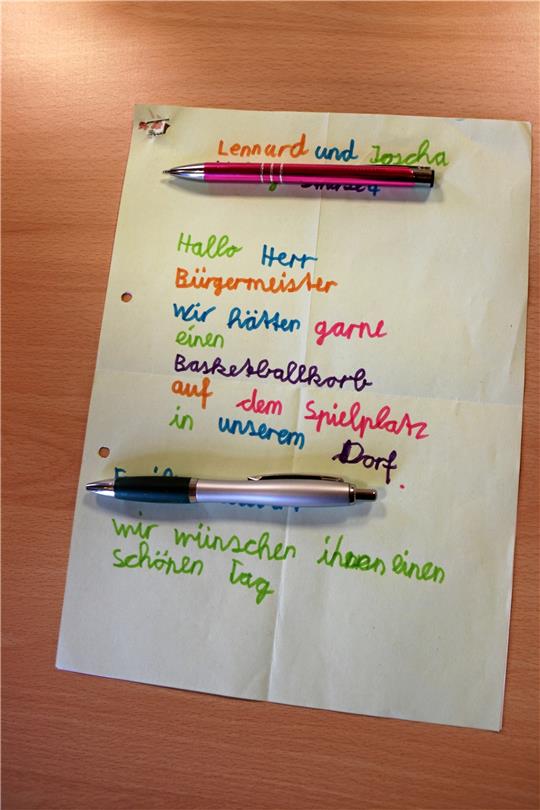 Lennard und Joscha
Hallo Herr
Bürgermeister
wir hätten garne
einen
Basketballkorb
auf dem Spielplatz
in unserem
Dorf.
wir wünschen ihnen einen
schönen Tag